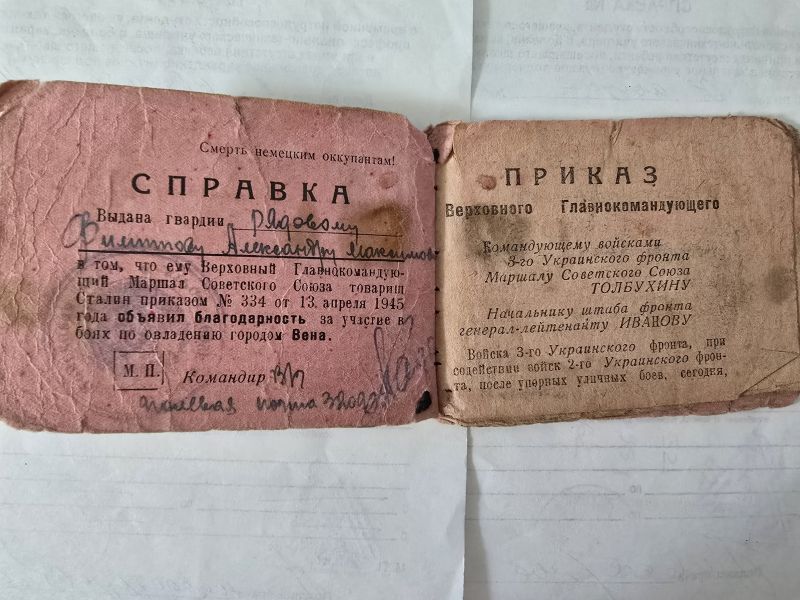 Смерть немецким оккупантам!
СПРАВКА
Выдана гвардии рядовому
Филиппову Александру Максимов
в том, что ему Верховный Главнокомандую-
щий Маршал Советского Союза товарищ
Сталин приказом № 334 от 13. апреля 1945
года объявил благодарность за участие в
боях по овладению городом Вена.
М. П.
Командир
полевая почта
ПРИКАЗ
Верховного Главнокомандующего
Командующему войсками
3-го Украинского фронта
Маршалу Советского Союза
ТОЛБУХИНУ
Начальнику штаба фронта
генерал-лейтенанту ИВАНОВУ
Войска 3-го Украинского фронта, при
содействии войск 2-го Украинского фрон-
та, после упорных уличных боев, сегодня,